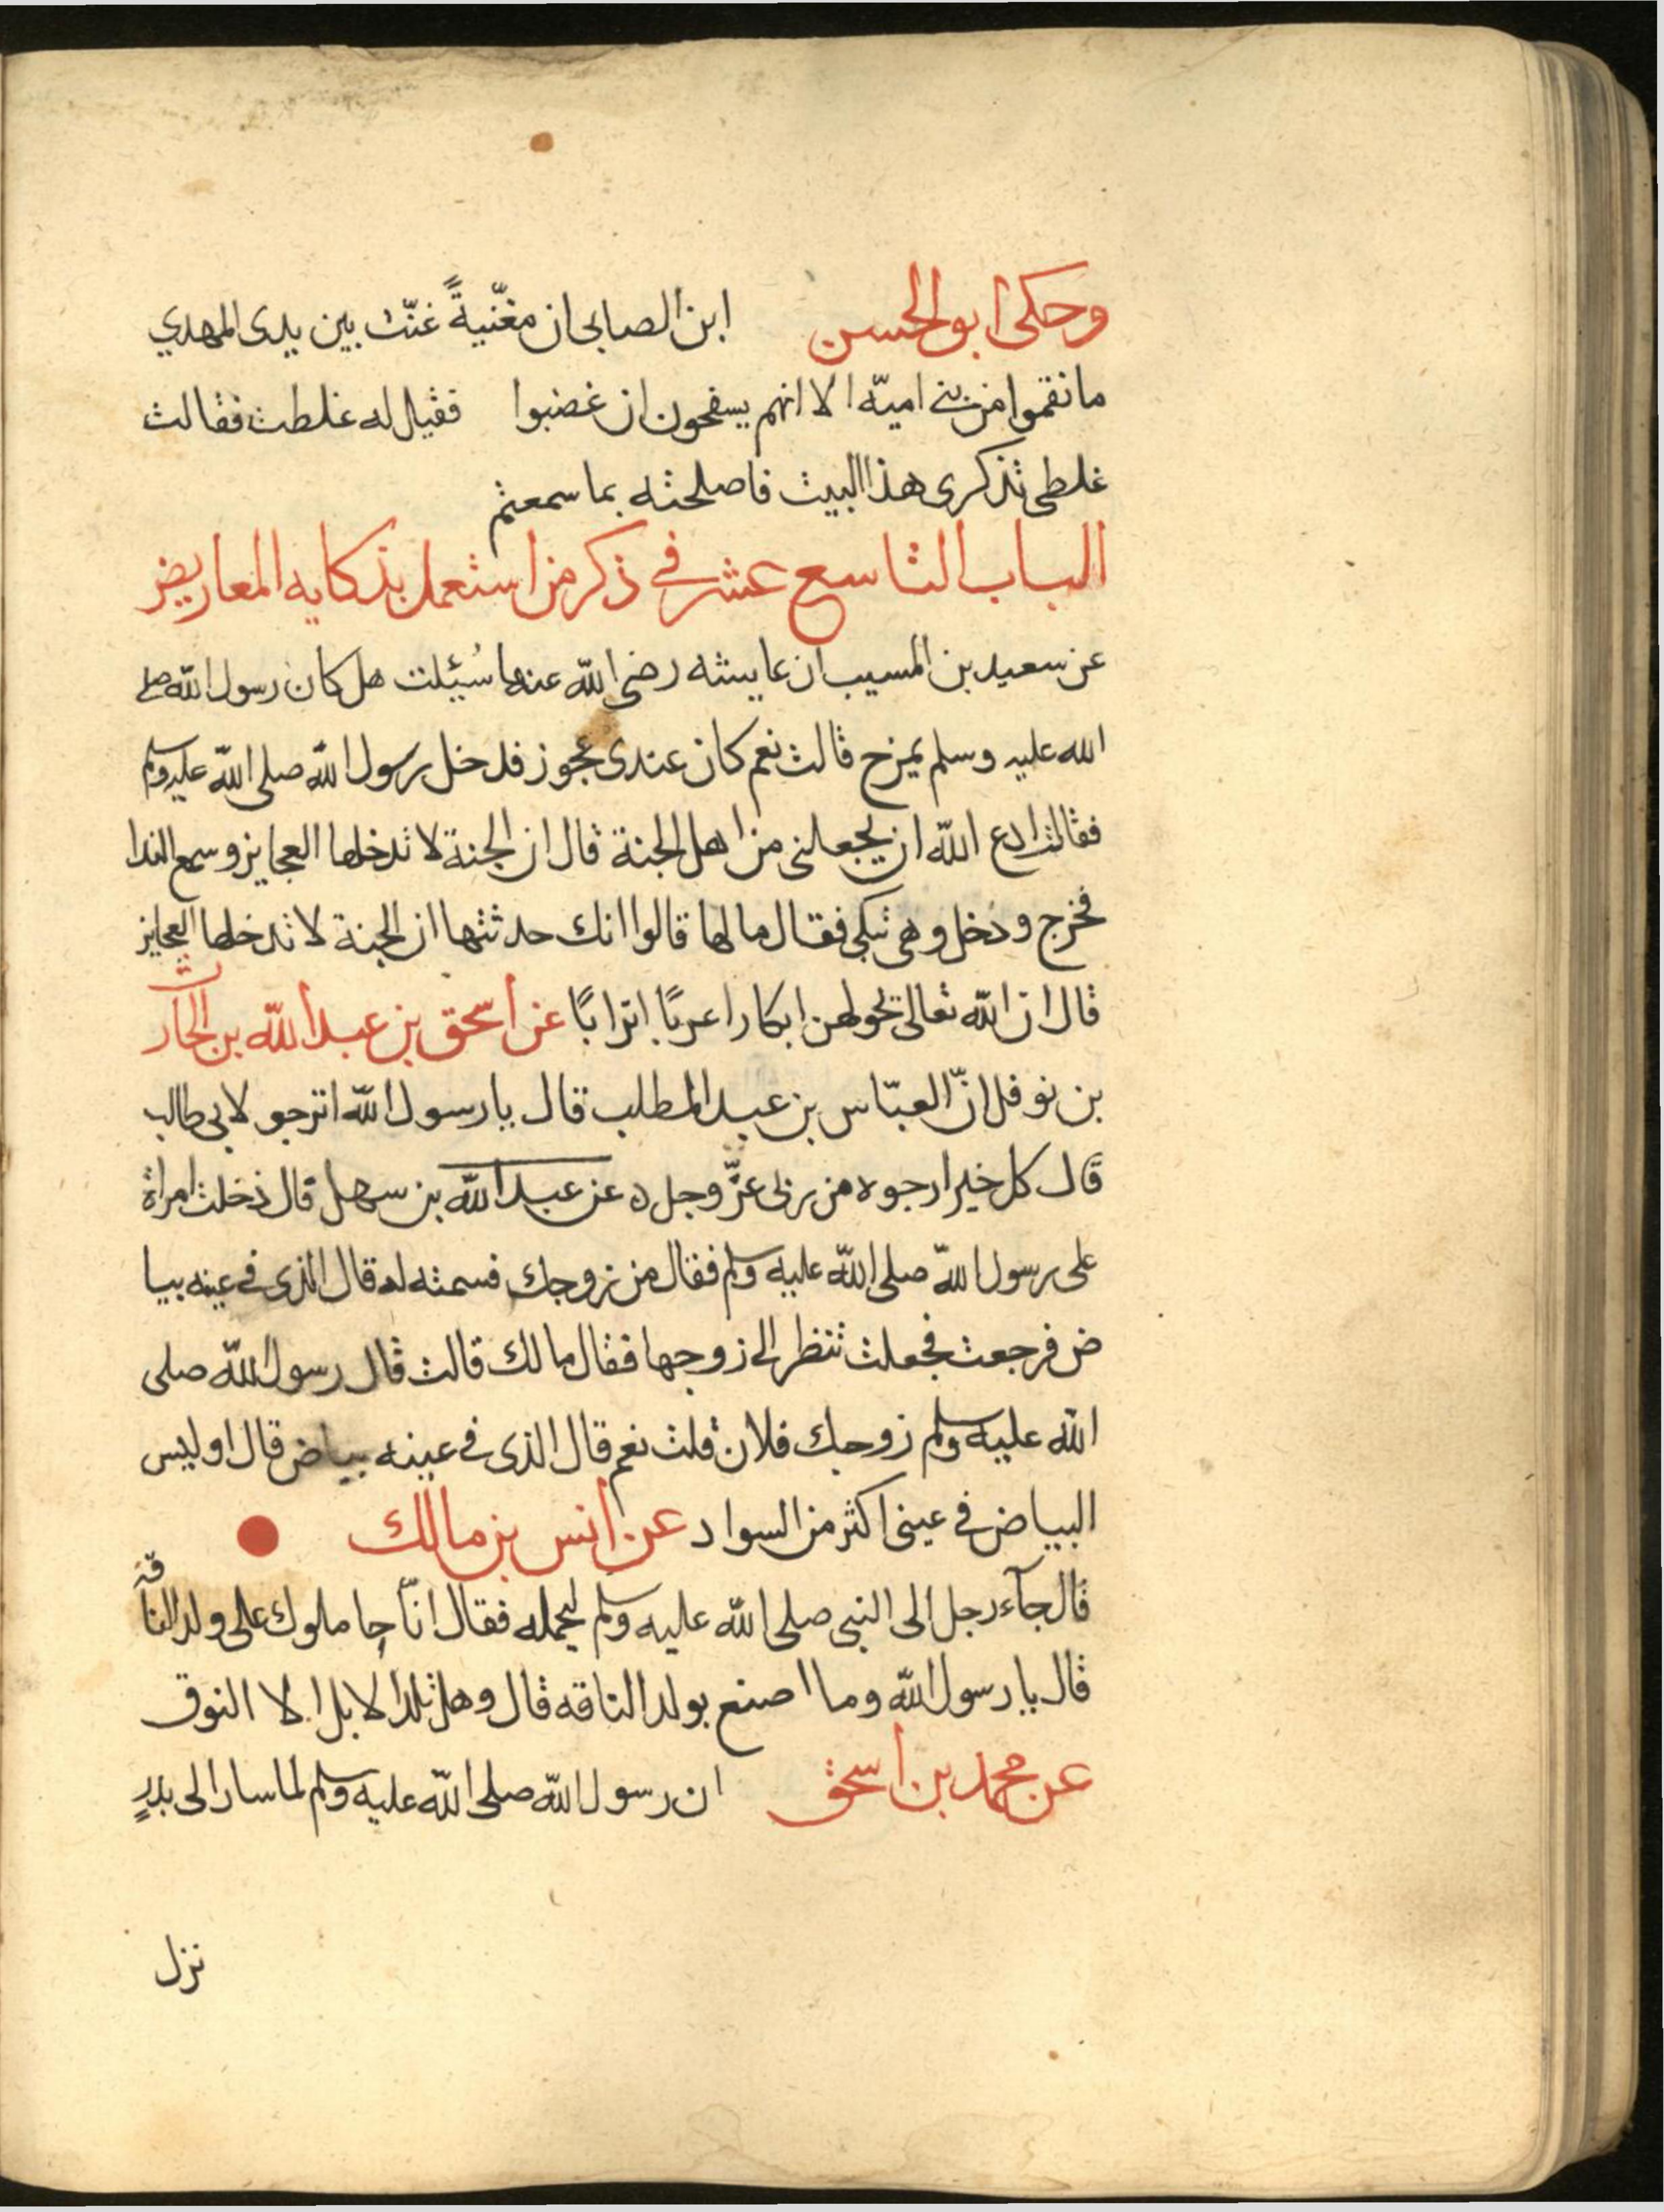 وحكى ابو الحسن ابن الصابى ان مغّنيةً غنّت بين يدى المهدي
ما نقموا من بنى اميّه الا انهم يسفحون ان غضبوا فقيل له غلطت فقالت
غلطى تذكرى هذا البيت فاصلحته بما سمعتم
الباب التاسع عشر في ذكر من استعمل بذكايه المعاريض
عن سعيد بن المسيب ان عايشه رضى الله عنها سُئلت هل كان رسول الله صلى
الله عليه وسلم يمزح قالت نعم كان عندى عجوز فدخل رسول الله صلى الله عليه وسلم
فقالت ادع الله ان يجعلنى من اهل الجنة قال ان الجنة لا تدخلها العجايز وسمع الندا
فخرج ودخل وهى تبكى فقال ما لها قالوا انك حدثتها ان الجنة لا تدخلها العجايز
قال ان الله تعالى يحولهن ابكارا عربًا اترابًا عن اسحق بن عبد الله بن الحارث
بن نوفل انّ العبّاس بن عبد المطلب قال يا رسول الله اترجو لابى طالب
قال كل خير ارجوه من ربى عزّ وجل ه عن عبد الله بن سهل قال دخلت امراة
على رسول الله صلى الله عليه وسلم فقال من زوجك فسمته له قال الذى في عينه بيا
ض فرجعت فجعلت تنظر الى زوجها فقال ما لك قالت قال رسول الله صلى
الله عليه وسلم زوجك فلان قلت نعم قال الذى في عينه بياض قال اوليس
البياض في عينى اكثر من السواد عن انس بن مالك
قال جآء رجل الى النبى صلى الله عليه وسلم ليحمله فقال انّا حاملوك على ولد الناقه
قال يا رسول الله وما اصنع بولد الناقه قال وهل تلد الابل الا النوق
عن محمد بن اسحق ان رسول الله صلى الله عليه وسلم لما سار الى بدرٍ
نزل